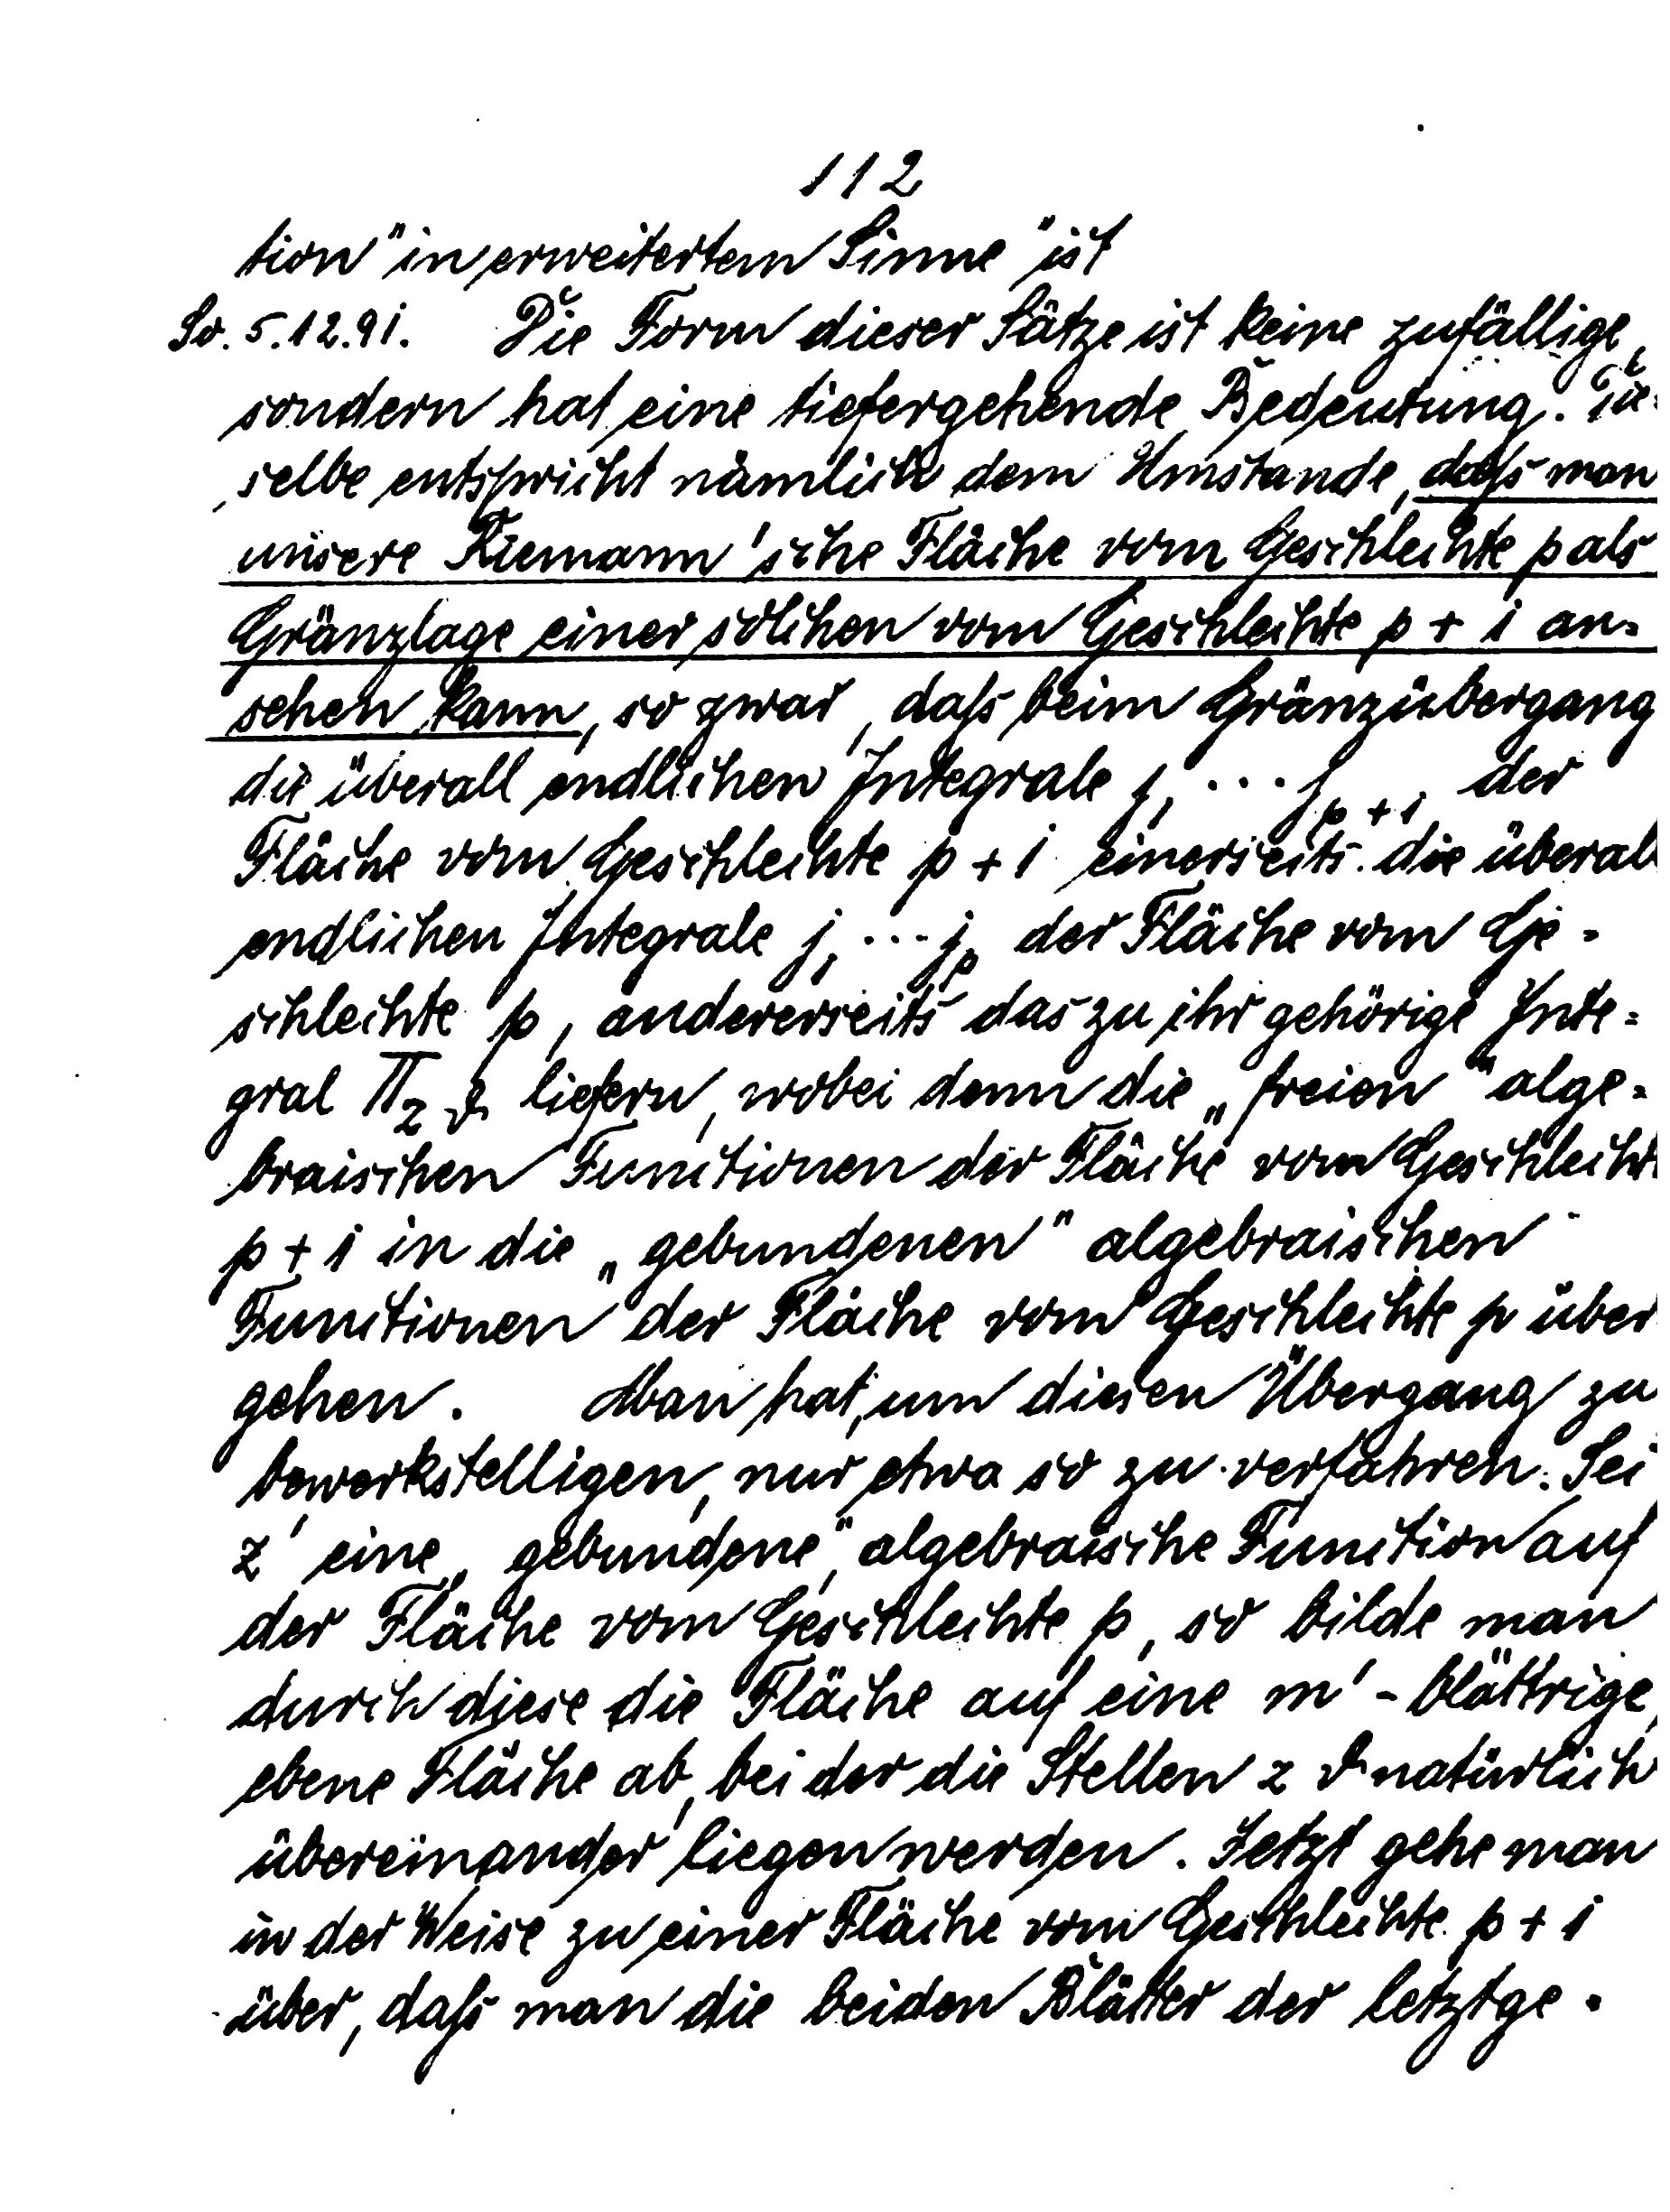 112
tion "in erweitertem Sinne" ist
So. 5.12.91. Die Form dieser Sätze ist keine zufällige,
sondern hat eine tiefergehende Bedeutung. Die-
selbe entspricht nämlich dem Umstande, daſs man
unsere Riemann'sche Fläche vom Geschlechte p als
Gränzlage einer solchen vom Geschlechte p + 1 an=
sehen kann, so zwar, daſs beim Gränzübergang
die überall endlichen Integrale j₁ ... j_{p+1} der
Fläche vom Geschlechte p + 1 einerseits die überall
endlichen Integrale j₁ ... j_p der Fläche vom Ge-
schlechte p, andererseits das zu ihr gehörige Inte=
gral Π_{z ϑ} liefern, wobei denn die „freien" alge=
braischen Functionen der Fläche vom Geschlecht
p + 1 in die „gebundenen" algebraischen
Functionen der Fläche vom Geschlechte p über
gehen. Man hat, um diesen Übergang zu
bewerkstelligen, nur etwa so zu verfahren. Sei
z' eine „gebundene" algebraische Function auf
der Fläche vom Geschlechte p, so bilde man
durch diese die Fläche auf eine m'-blättrige,
ebene Fläche ab, bei der die Stellen z ϑ natürlich
übereinander liegen werden. Jetzt gehe man
in der Weise zu einer Fläche vom Geschlechte p + 1
über, daſs man die beiden Blätter der letztge-